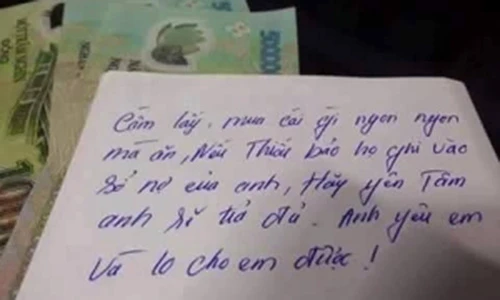 50000
MƯỜI NGHÌN
ĐỒNG
10
Cầm lấy. mua cái gì ngon ngon
mà ăn, Nếu Thiếu bảo họ ghi vào
sổ nợ của anh, Hãy yên Tâm
anh sẽ trả đủ. Anh yêu em
Và lo cho em được!